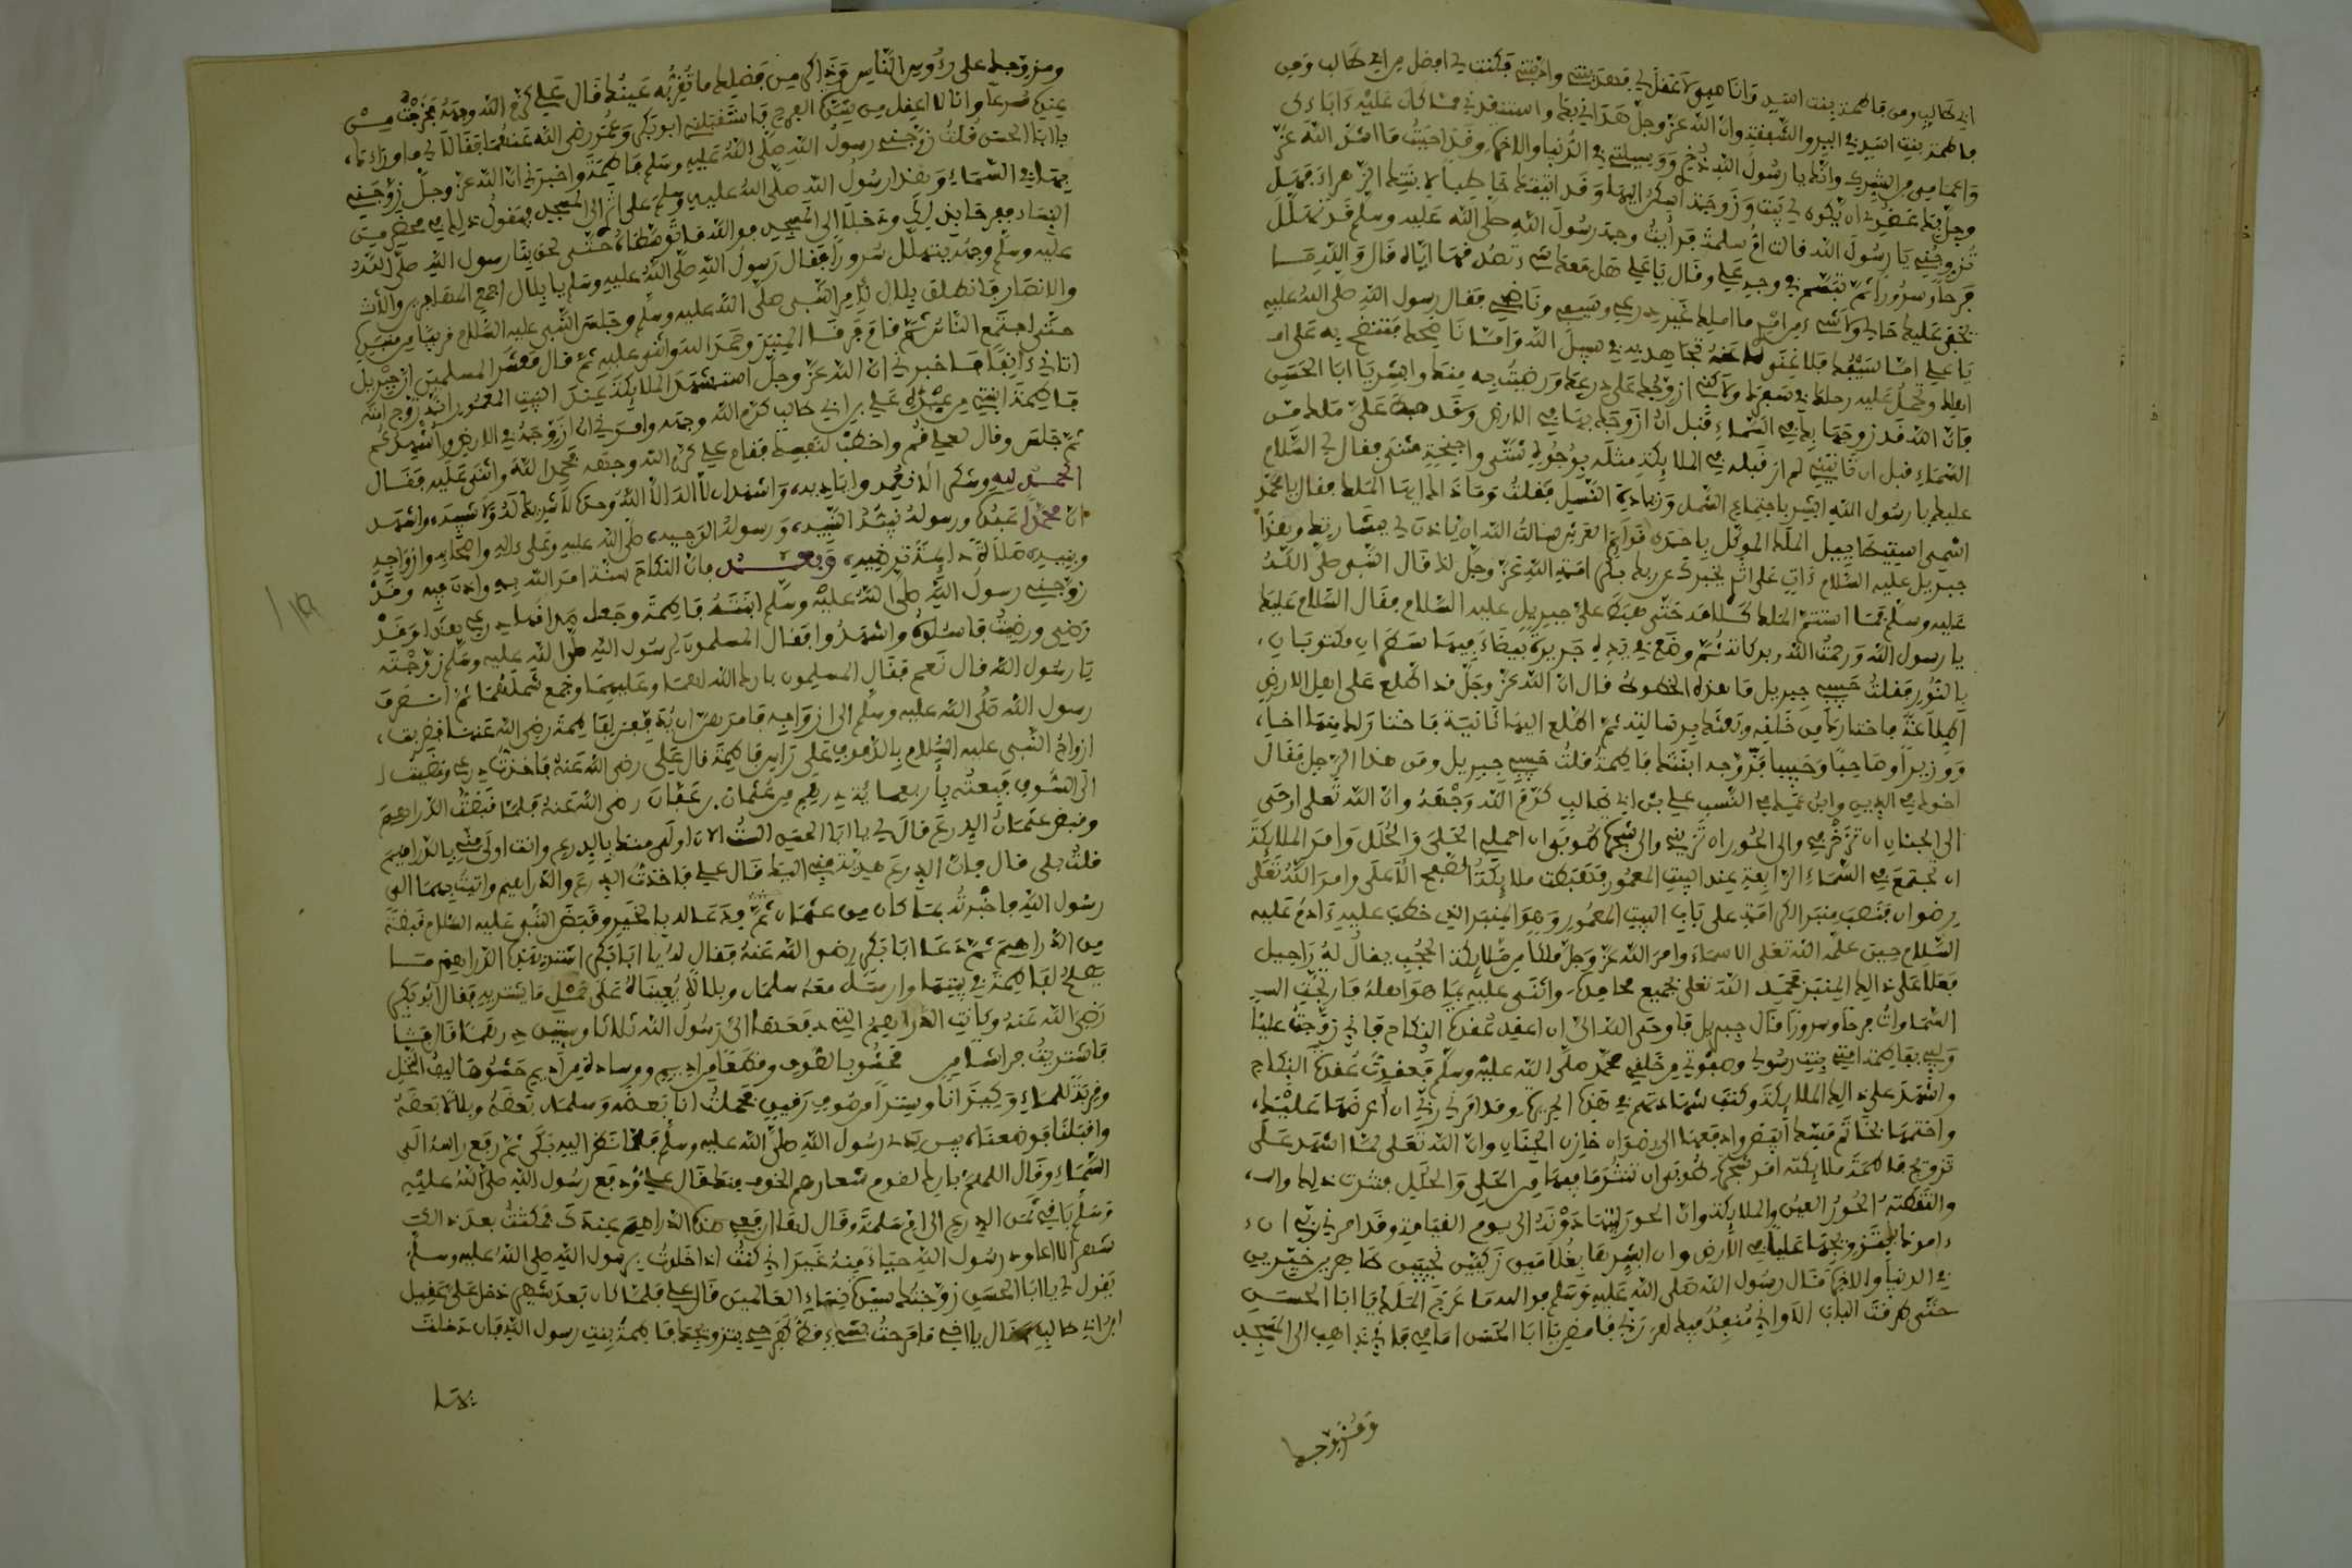 ابي طالب ومن فاطمة بنت اسد وانا صبي لا عقل لي فغذيتني وادبتني فكنت لي افضل من ابي طالب ومن
فاطمة بنت اسد في البر والشفقة وان الله عز وجل هداني بك واستنقذني مما كان عليه ءاباءي
واعمامي من الشرك وانك يا رسول الله ذخري ووسيلتي في الدنيا والاخرة وقد احببت ما شد الله عز
وجل بك عضدي ان يكون لي بيت وزوجة اسكن اليها وقد اتيتك خاطبا لابنتك الزهراء فهل
تزوجني يا رسول الله قالت ام سلمة فرأيت وجه رسول الله صلى الله عليه وسلم قد تهلل
فرحا وسرورا ثم تبسم في وجه علي وقال يا علي هل معك شيء تصدقها اياه قال والله ما
يخفى عليك حالي ولا شيء من امري ما املك غير درعي وسيفي وناضحي فقال رسول الله صلى الله عليه
يا علي اما سيفك فلا غنى لك عنه تجاهد به في سبيل الله واما ناضحك فتنضح به على
اهلك وتحمل عليه رحلك في سفرك ولاكني ازوجك على درعك ورضيت به منك وابشر يا ابا الحسن
فان الله قد زوجها بك في السماء قبل ان ازوجك بها في الارض وقد هبط علي ملك من
السماء قبل ان تاتيني لم ار قبله في الملائكة مثله بوجوه شتى واجنحة مثنى فقال لي السلام
عليك يا رسول الله ابشر باجتماع الشمل وزيادة النسل فقلت وما ذاك ايها الملك فقال يا محمد
جبريل عليه السلام ءات على اثري يخبرك عن ربك بكرامة الله عز وجل لك قال النبي صلى الله
عليه وسلم فما استتم الملك كلامه حتى هبط علي جبريل عليه السلام فقال السلام عليك
يا رسول الله ورحمة الله وبركاته ثم وضع في يدي حريرة بيضاء فيها سطران مكتوبان
بالنور فقلت حبيبي جبريل ما هذه الخطوط قال ان الله عز وجل قد اطلع على اهل الارض
اطلاعة فاختارك من خلقه وبعثك برسالته ثم اطلع اليها ثانية فاختار لك منها اخا
ووزيرا وصاحبا وحبيبا فزوجه ابنتك فاطمة قلت حبيبي جبريل ومن هذا الرجل فقال
اخوك في الدين وابن عمك في النسب علي بن ابي طالب كرم الله وجهه وان الله تعلى اوحى
الى الجنان ان تزخرفي والى الحور ان تزيني والى شجرة طوبى ان احملي الحلي والحلل وامر الملائكة
ان تجتمع في السماء الرابعة عند البيت المعمور فهبطت ملائكة الصفيح الاعلى وامر الله تعلى
رضوان فنصب منبر الكرامة على باب البيت المعمور وهو المنبر الذي خطب عليه ءادم عليه
السلام حين علمه الله تعلى الاسماء وامر الله عز وجل ملكا من ملائكة الحجب يقال له راحيل
فعلا على ذالك المنبر فحمد الله تعلى بجميع محامده واثنى عليه بما هو اهله فارتجت
السماوات فرحا وسرورا قال جبريل فاوحى الله الي ان اعقد عقدة النكاح فاني زوجت عليا
وليي بفاطمة امتي بنت رسولي وصفوتي من خلقي محمد صلى الله عليه وسلم فعقدت عقدة النكاح
واشهدت على ذالك الملائكة وكتبت شهادتهم في هذه الحريرة وقد امرني ربي ان اعرضها عليك
واختمها بخاتم مسك ابيض وادفعها الى رضوان خازن الجنان وان الله تعلى لما اشهد على
تزويج فاطمة ملائكته امر شجرة طوبى ان تنثر ما فيها من الحلي والحلل فنثرت ذالك
والتقطته الحور العين والملائكة وان الحور ليتهادونه الى يوم القيامة وقد امرني ربي ان
ءامرك بتزويجها عليا في الارض وان ابشرها بغلامين زكيين نجيبين طاهرين خيرين
في الدنيا والاخرة فقال رسول الله صلى الله عليه وسلم فوالله ما عرج الملك يا ابا الحسن
حتى طرقت الباب الا واني منفذ فيك امر ربي فامض يا ابا الحسن امامي فاني ذاهب الى المسجد
ومزوجك
ومزوجك على رءوس الناس وذاكر من فضلك ما تقر به عينك قال علي كرم الله وجهه فخرجت من
عنده مسرعا وانا لا اعقل من شدة الفرح فاستقبلني ابو بكر وعمر رضي الله عنهما فقالا لي ما وراءك
يا ابا الحسن قلت زوجني رسول الله صلى الله عليه وسلم فاطمة واخبرني ان الله عز وجل زوجنيها
في السماء وهذا رسول الله صلى الله عليه وسلم على اثري الى المسجد فيقول ذالك في محضر من
الناس ففرحا بذلك ودخلا الى المسجد فوالله ما توسطناه حتى لحق بنا رسول الله صلى الله
عليه وسلم وجهه يتهلل سرورا فقال رسول الله صلى الله عليه وسلم يا بلال اجمع المهاجرين
والانصار فانطلق بلال لامر النبي صلى الله عليه وسلم وجلس النبي عليه السلام قريبا من منبره
حتى اجتمع الناس ثم قام فرقا المنبر وحمد الله واثنى عليه ثم قال معشر المسلمين ان جبريل
اتاني ءانفا فاخبرني ان الله عز وجل استشهد الملائكة عند البيت المعمور انه زوج امته
فاطمة ابنتي من عبده علي بن ابي طالب كرم الله وجهه وامرني ان ازوجه في الارض واشهدكم
ثم جلس وقال لعلي قم واخطب لنفسك فقام علي كرم الله وجهه فحمد الله واثنى عليه فقال
الحمد لله وشكرا لانعمه واياديه واشهد ان لا اله الا الله وحده لا شريك له ولا شبيه واشهد
ان محمدا عبده ورسوله نبيه النبيه ورسوله الوجيه صلى الله عليه وعلى ءاله واصحابه وازواجه
وبنيه صلاة دائمة ترضيه وبعد فان النكاح سنة امر الله به واذن فيه وقد
زوجني رسول الله صلى الله عليه وسلم ابنته فاطمة وجعل صداقها درعي هذا وقد
رضي ورضيت فاسئلوه واشهدوا فقال المسلمون لرسول الله صلى الله عليه وسلم زوجته
يا رسول الله قال نعم فقال المسلمون بارك الله لهما وعليهما وجمع شملهما ثم انصرف
رسول الله صلى الله عليه وسلم الى ازواجه فامرهن ان
ازواج النبي عليه السلام بالدفوف على راس فاطمة قال علي رضي الله عنه فاخذت درعي ومضيت
الى السوق فبعته باربعمائة درهم من عثمان بن عفان رضي الله عنه فلما قبضت الدراهم
وقبض عثمان الدرع قال لي يا ابا الحسن الست الان اولى منك بالدرع وانت اولى مني بالدراهم
قلت بلى قال فان الدرع هدية مني اليك قال علي فاخذت الدرع والدراهم واتيت بهما الى
رسول الله فاخبرته بما كان من عثمان ثم فدعا له بالخير وقبض النبي عليه السلام قبضة
من الدراهم ثم دعا ابا بكر رضي الله عنه فقال له يا ابا بكر اشتر بهذه الدراهم ما
يصلح لفاطمة في بيتها وارسل معه سلمان وبلالا يعيناه على حمل ما يشتريه فقال ابو بكر
رضي الله عنه وكانت الدراهم التي دفعها الي رسول الله ثلاثا وستين درهما قال
فاشتريت فراشا من محشو بالصوف ونطعا من اديم ووسادة من اديم حشوها ليف النخل
وقربة للماء وكيزانا وسترا من صوف رقيق فحملت انا بعضه وسلمان بعضه وبلال بعضه
واقبلنا فوضعناه بين يدي رسول الله صلى الله عليه وسلم فلما نظر اليه بكى ثم رفع راسه الى
السماء وقال اللهم بارك لقوم شعارهم الخوف منك قال علي ودفع رسول الله صلى الله عليه
وسلم باقي ثمن الدرع الى ام سلمة وقال لها ارفعي هذه الدراهم عندك فمكثت بعد ذالك
شهرا لا اعاود رسول الله حياء منه غير اني كنت اذا خلوت برسول الله صلى الله عليه وسلم
يقول لي يا ابا الحسن زوجتك سيدة نساء العالمين قال علي فلما كان بعد شهر دخل علي عقيل
ابن ابي طالب فقال يا اخي ما فرحت بشيء قط كفرحي بتزويجك فاطمة بنت رسول الله فان دخلت
بها